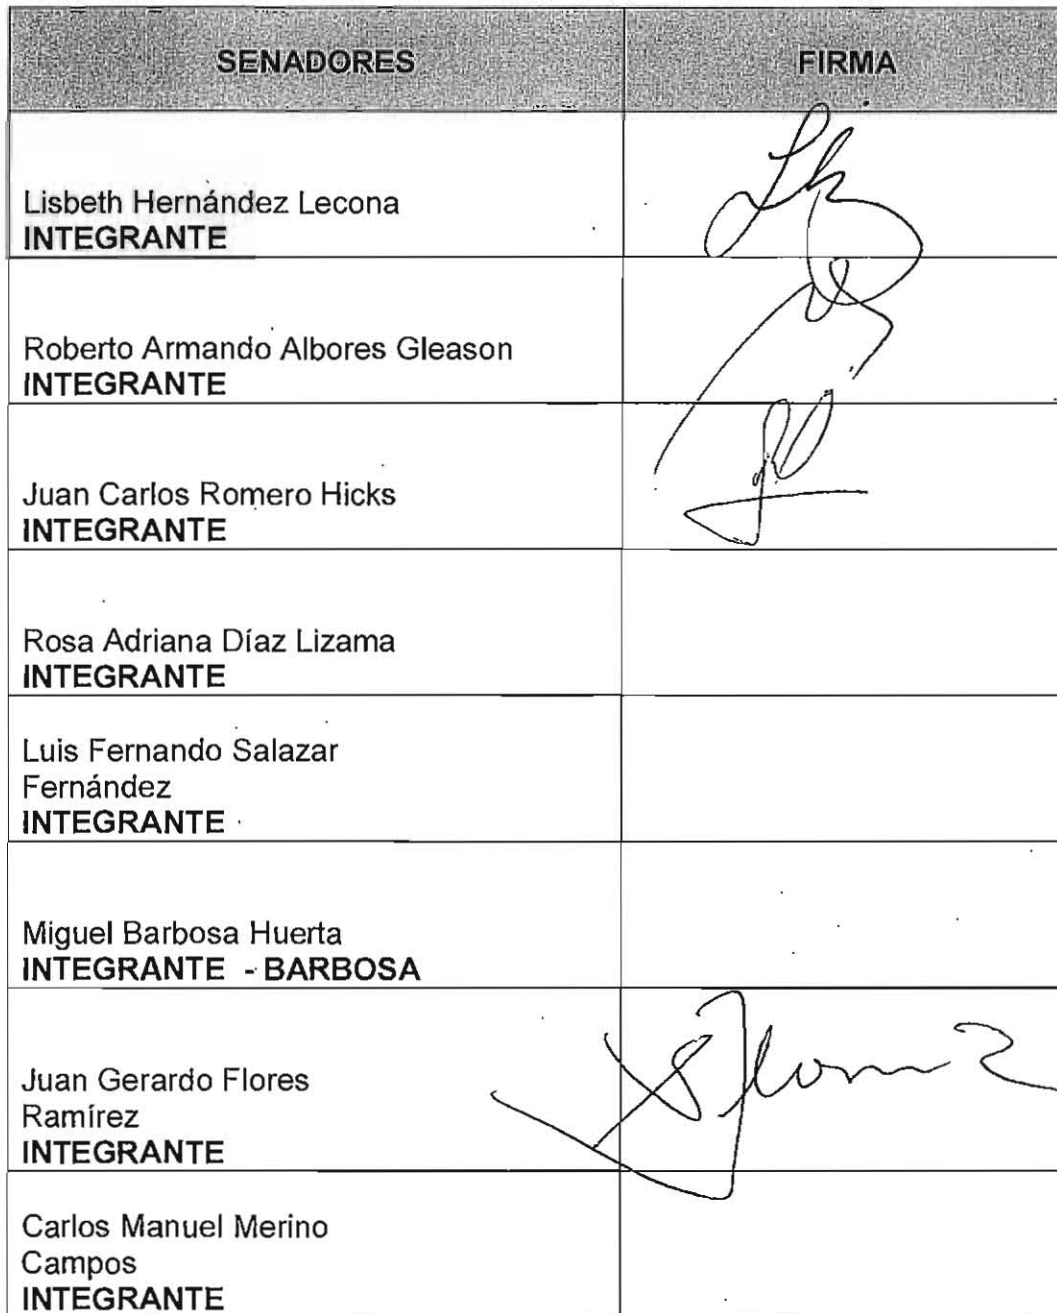 SENADORES FIRMA
Lisbeth Hernández Lecona
INTEGRANTE
Roberto Armando Albores Gleason
INTEGRANTE
Juan Carlos Romero Hicks
INTEGRANTE
Rosa Adriana Díaz Lizama
INTEGRANTE
Luis Fernando Salazar
Fernández
INTEGRANTE
Miguel Barbosa Huerta
INTEGRANTE - BARBOSA
Juan Gerardo Flores
Ramírez
INTEGRANTE
Carlos Manuel Merino
Campos
INTEGRANTE